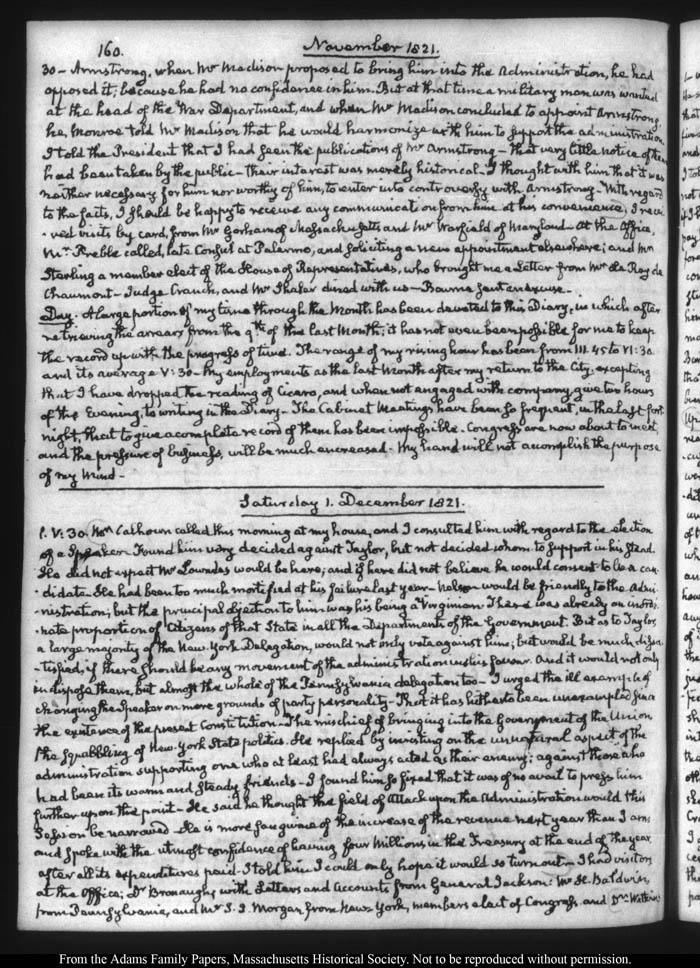 160.
November 1821.
30 - Armstrong, when Mr Madison proposed to bring him into the Administration, he had
opposed it; because he had no confidence in him. But at that time a military man was wanted
at the head of the War Department, and when Mr Madison concluded to appoint Armstrong,
he, Monroe told Mr Madison that he would harmonize with him to support the administration.
I told the President that I had seen the publications of Mr Armstrong - that very little notice of them
had been taken by the public - their interest was merely historical. I thought with him that it was
neither necessary for him nor worthy of him, to enter into controversy with Armstrong - With regard
to the facts, I should be happy to receive any communication from him at his convenience, I recei
-ved visits by card, from Mr Gorham of Massachusetts and Mr Warfield of Maryland - At the Office,
Mr Preble called, late Consul at Palermo, and soliciting a new appointment elsewhere; and Mr
Sterling a member elect of the House of Representatives, who brought me a Letter from Mr Le Ray de
Chaumont - Judge Cranch, and Mr Shaler dined with us -
Day. A large portion of my time through the Month has been devoted to this Diary, in which after
retrieving the arrears from the 9th of the last Month; it has not even been possible for me to keep
the record up with the progress of time. The range of my rising hour has been from III.45 to VI:30
and its average V:30 - My employments as the last Month after my return to the City, excepting
that I have dropped the reading of Cicero, and when not engaged with company, give two hours
of the Evening, to writing in the Diary - The Cabinet Meetings have been so frequent, in the last fort-
night, that to give a complete record of them has been impossible. Congress are now about to meet,
and the pressure of business, will be much encreased - My hand will not accomplish the purpose
of my mind -
Saturday 1. December 1821.
1. V:30. Mr Calhoun called this morning at my house, and I consulted him with regard to the election
of a Speaker. Found him very decided against Taylor, but not decided whom to support in his stead.
He did not expect Mr Lowndes would be here; and if here did not believe he would consent to be a can-
-didate. He had been too much mortified at his failure last year - Nelson would be friendly to the Admi-
-nistration; but the principal objection to him was his being a Virginian. There was already an inordi-
-nate proportion of Citizens of that State in all the Departments of the Government. But as to Taylor,
a large majority of the New York Delegation, would not only vote against him; but would be much dissa-
-tisfied, if there should be any movement of the administration in his favour. And it would not only
indispose them, but almost the whole of the Pennsylvania delegation too - I urged the ill example of
changing the Speaker on mere grounds of party personality - That it has hitherto been unexampled since
the existence of the present Constitution - The mischief of bringing into the Government of the Union
the squabbling of New-York State politics. He replied by insisting on the unnatural aspect of the
administration supporting one who at least had always acted as their enemy; against those who
had been its warm and steady friends - I found him so fixed that it was of no avail to press him
further upon the point - He said he thought the field of Attack upon the Administration would this
Session be narrowed - He is more sanguine of the increase of the revenue next year than I am;
and spoke with the utmost confidence of having four Millions in the Treasury at the end of the year
after all its expenditures paid. I told him I could only hope it would so turn out - I had visitors
at the Office; Dr Bronaugh, with Letters and Accounts from General Jackson: Mr H. Baldwin,
from Pennsylvania, and Mr J. J. Morgan from New-York, members elect of Congress. and
From the Adams Family Papers, Massachusetts Historical Society. Not to be reproduced without permission.